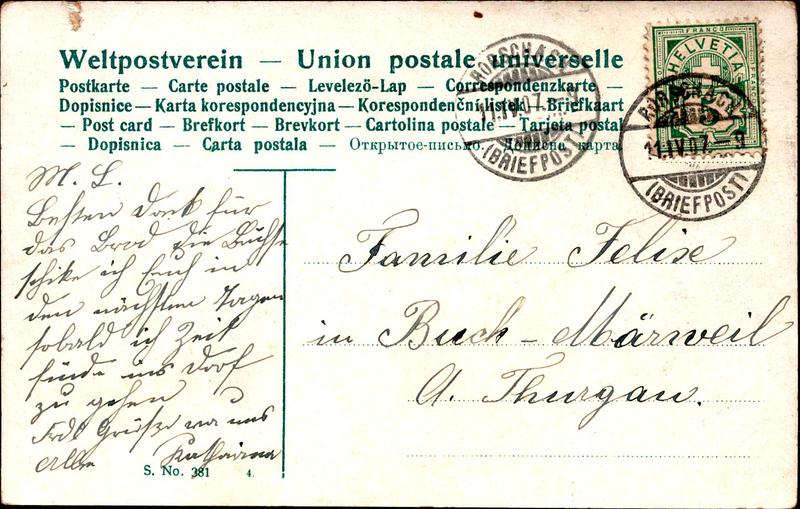 Weltpostverein — Union postale universelle
Postkarte — Carte postale — Levelező-Lap — Correspondenzkarte —
Dopisnice — Karta korespondencyjna — Korespondenční lístek — Briefkaart
— Post card — Brefkort — Brevkort — Cartolina postale — Tarjeta postal
— Dopisnica — Carta postala — Открытое письмо. Дописна карта.
RORSCHACH
11.IV.07.
(BRIEFPOST)
FRANCO
HELVETIA
5
RORSCHACH
11.IV.07.–9
(BRIEFPOST)
M. L.
Besten Dank für
das Brod die Büchse
schike ich Euch in
den nächsten Tagen
sobald ich Zeit
finde ins Dorf
zu gehen
Grüsse von uns
Alle Katharina
Familie Felix
in Buch - Märweil
Ct. Thurgau.
S. No. 381 4.